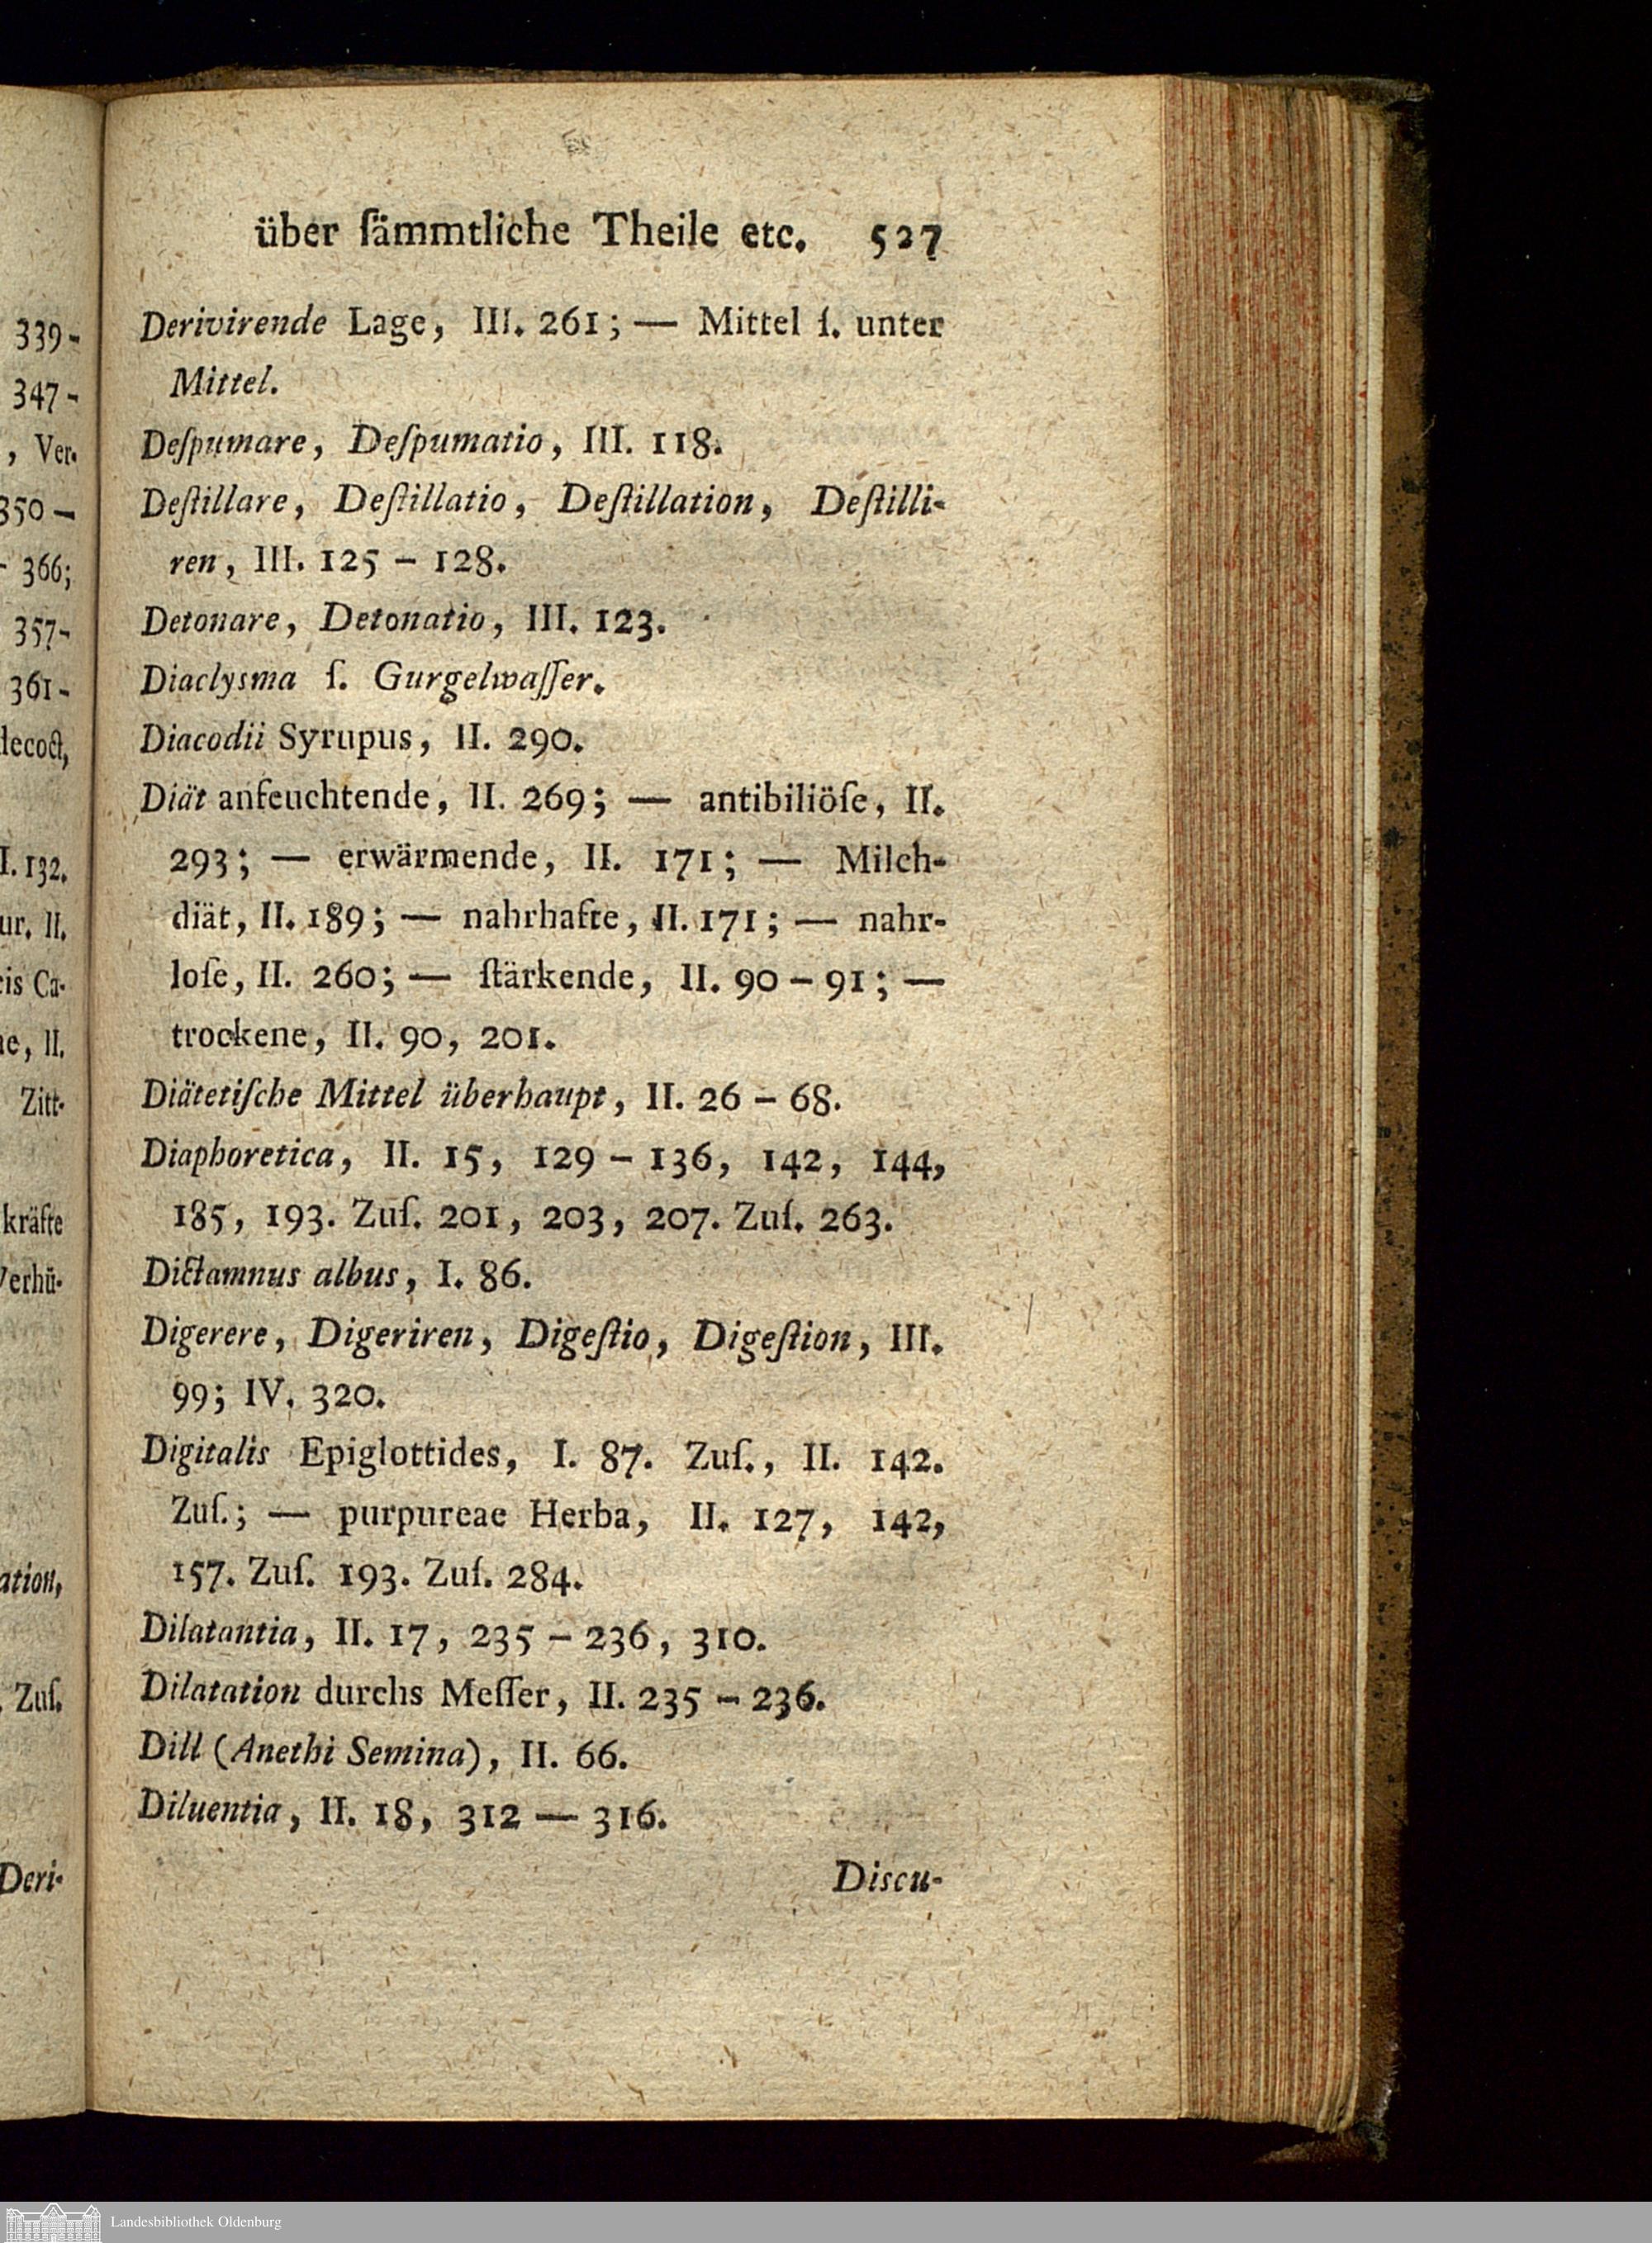 über ſämmtliche Theile etc. 527
Derivirende Lage, III. 261; — Mittel ſ. unter
Mittel.
Deſpumare, Deſpumatio, III. 118.
Deſtillare, Deſtillatio, Deſtillation, Deſtilli-
ren, III. 125 – 128.
Detonare, Detonatio, III. 123.
Diaclysma ſ. Gurgelwaſſer.
Diacodii Syrupus, II. 290.
Diät anfeuchtende, II. 269; — antibiliöſe, II.
293; — erwärmende, II. 171; — Milch-
diät, II. 189; — nahrhafte, II. 171; — nahr-
loſe, II. 260; — ſtärkende, II. 90 – 91; —
trockene, II. 90, 201.
Diätetiſche Mittel überhaupt, II. 26 – 68.
Diaphoretica, II. 15, 129 – 136, 142, 144,
185, 193. Zuſ. 201, 203, 207. Zuſ. 263.
Dictamnus albus, I. 86.
Digerere, Digeriren, Digeſtio, Digeſtion, III.
99; IV. 320.
Digitalis Epiglottides, I. 87. Zuſ., II. 142.
Zuſ.; — purpureae Herba, II. 127, 142,
157. Zuſ. 193. Zuſ. 284.
Dilatantia, II. 17, 235 – 236, 310.
Dilatation durchs Meſſer, II. 235 – 236.
Dill (Anethi Semina), II. 66.
Diluentia, II. 18, 312 — 316.
Discu-
339-
347-
, Ver-
350 —
- 366;
357-
361-
decoct,
I. 132.
ur. II.
cis Ca-
ne, II.
Zitt-
kräfte
Verhü-
ation,
. Zuſ.
Deri-
Landesbibliothek Oldenburg